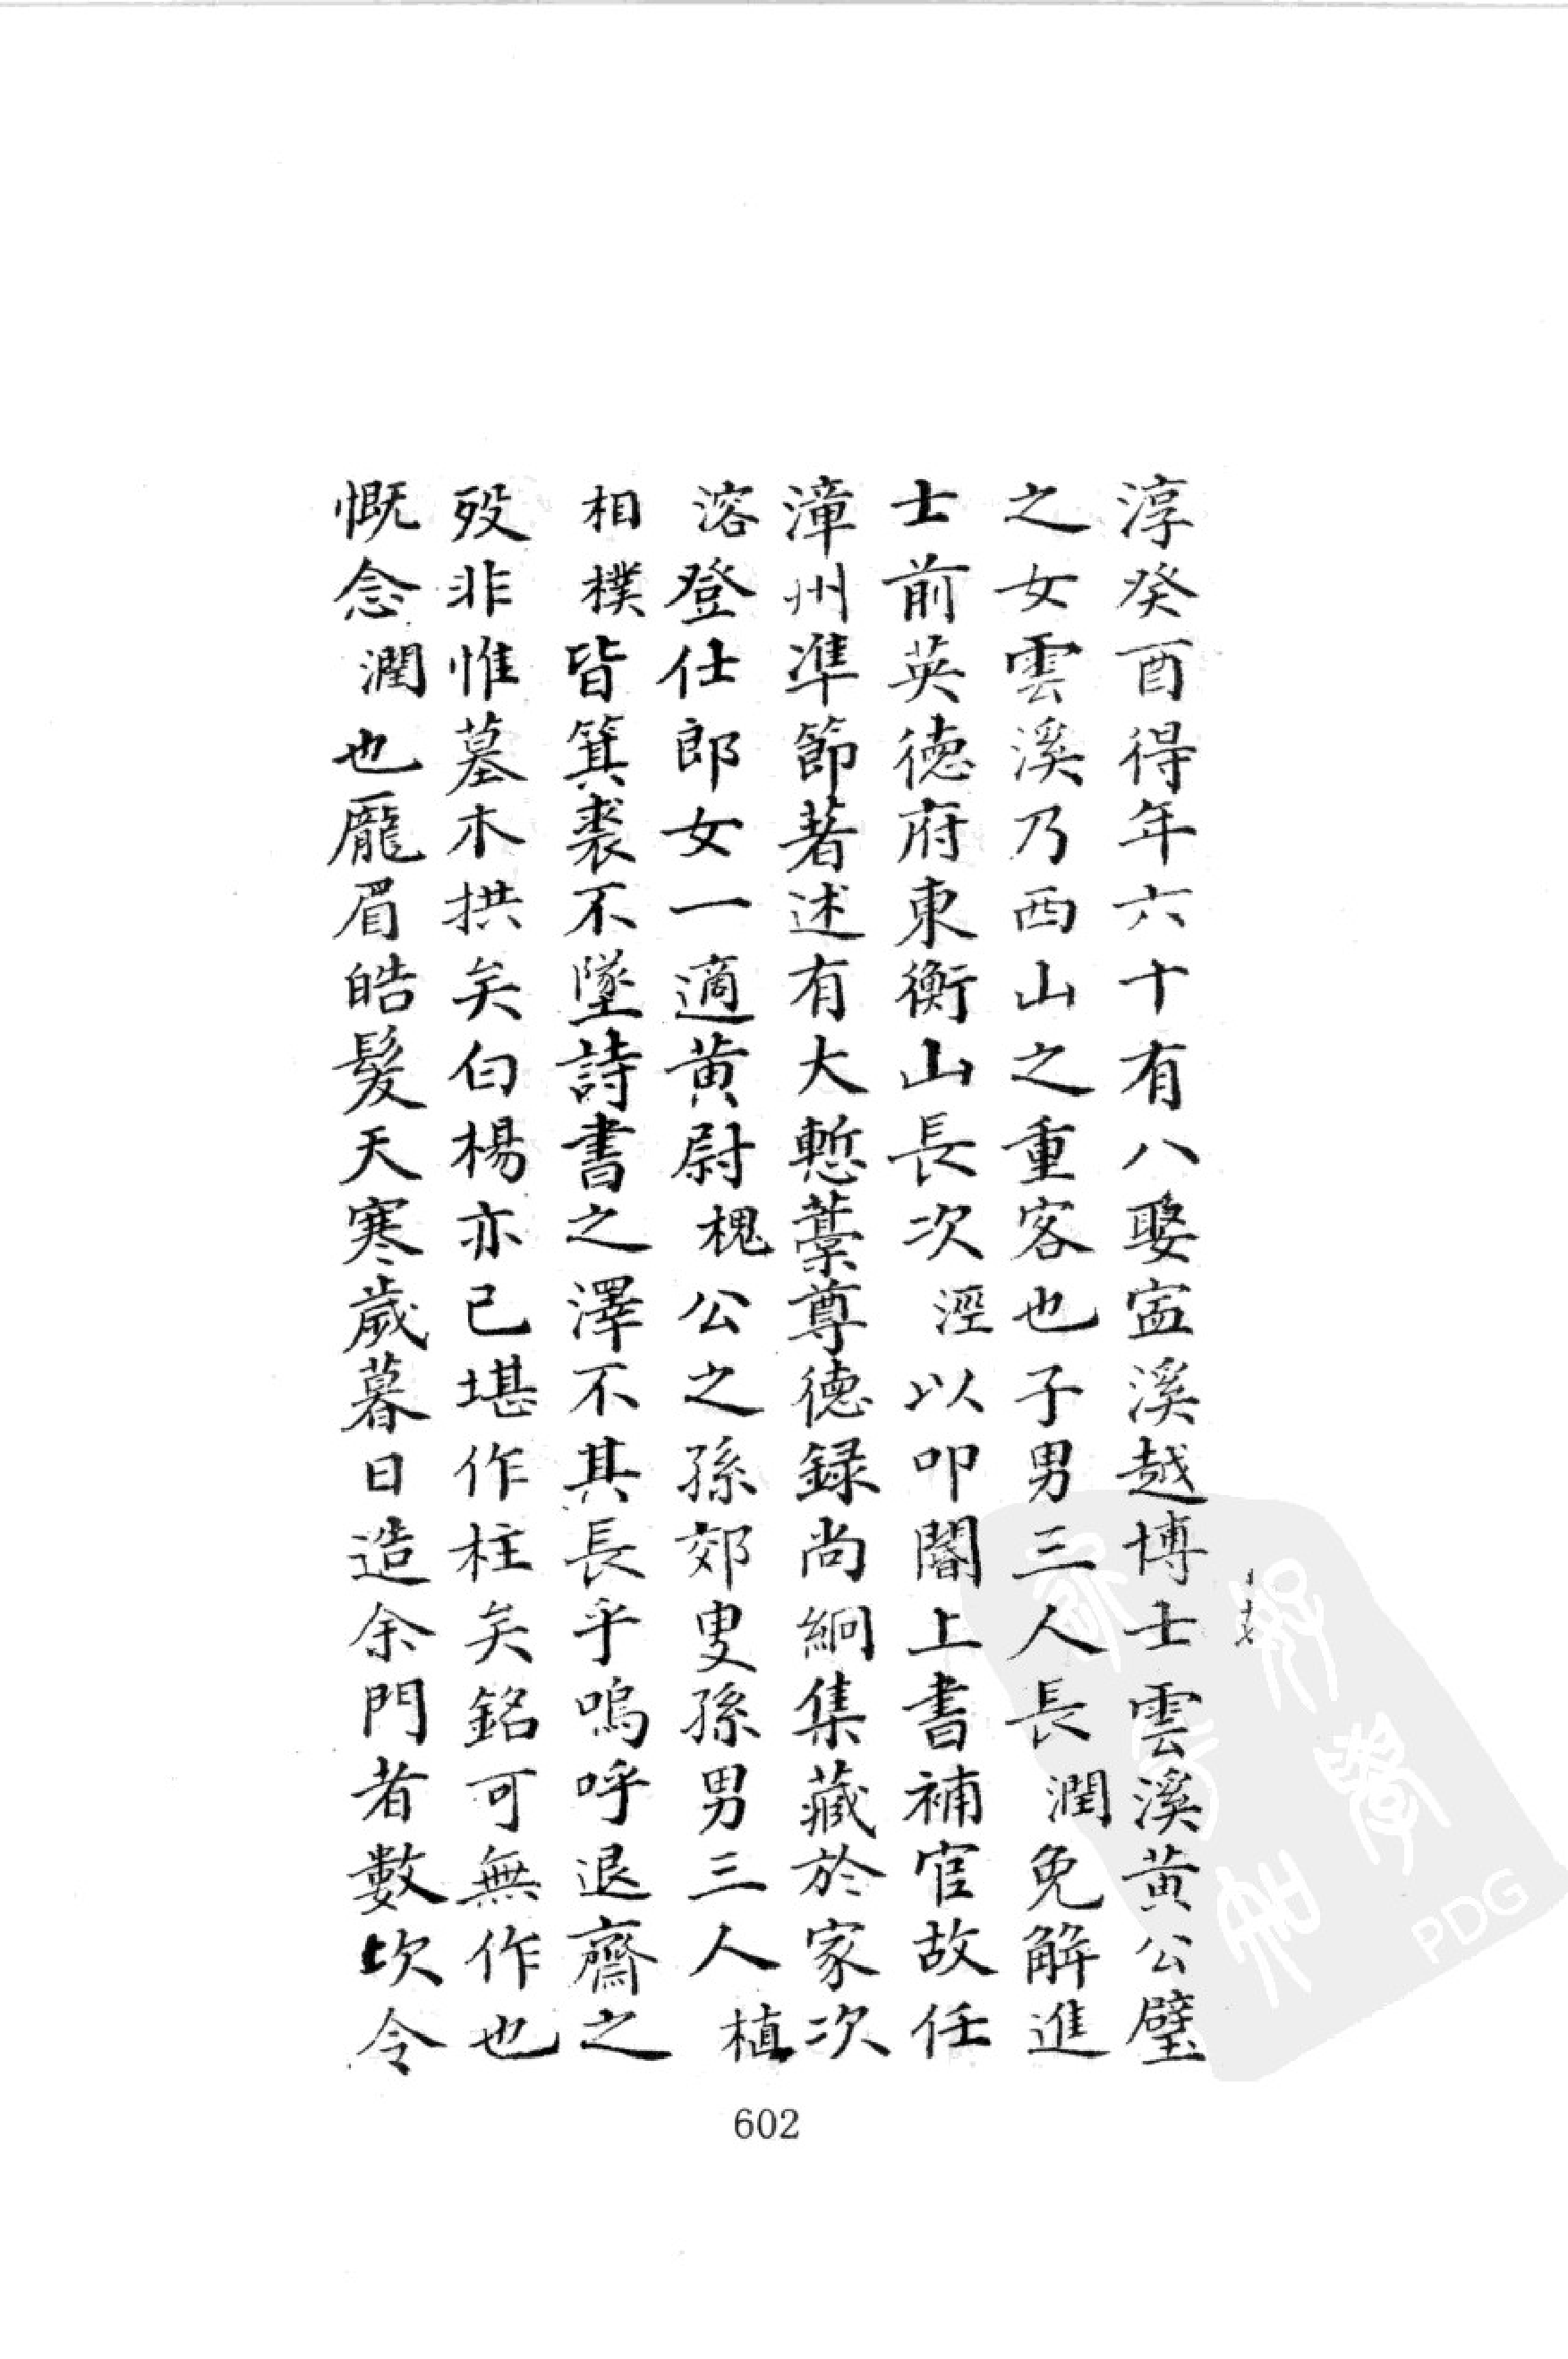 淳癸酉得年六十有八娶寍溪越博士雲溪黄公璧
之女雲溪乃西山之重客也子男三人長潤免解進
士前英德府東衡山長次淫以叩閽上書補官故任
漳州準節著述有大慙藁尊德録尚絅集藏於家次
溶登仕郎女一適黄尉槐公之孫郊叟孫男三人植
相樸皆箕裘不墜詩書之澤不其長乎嗚呼退齋之
歿非惟墓木拱矣白楊亦已堪作柱矣銘可無作也
慨念潤也龐眉皓髮天寒歲暮日造余門者數坎令
十七
602
PDG